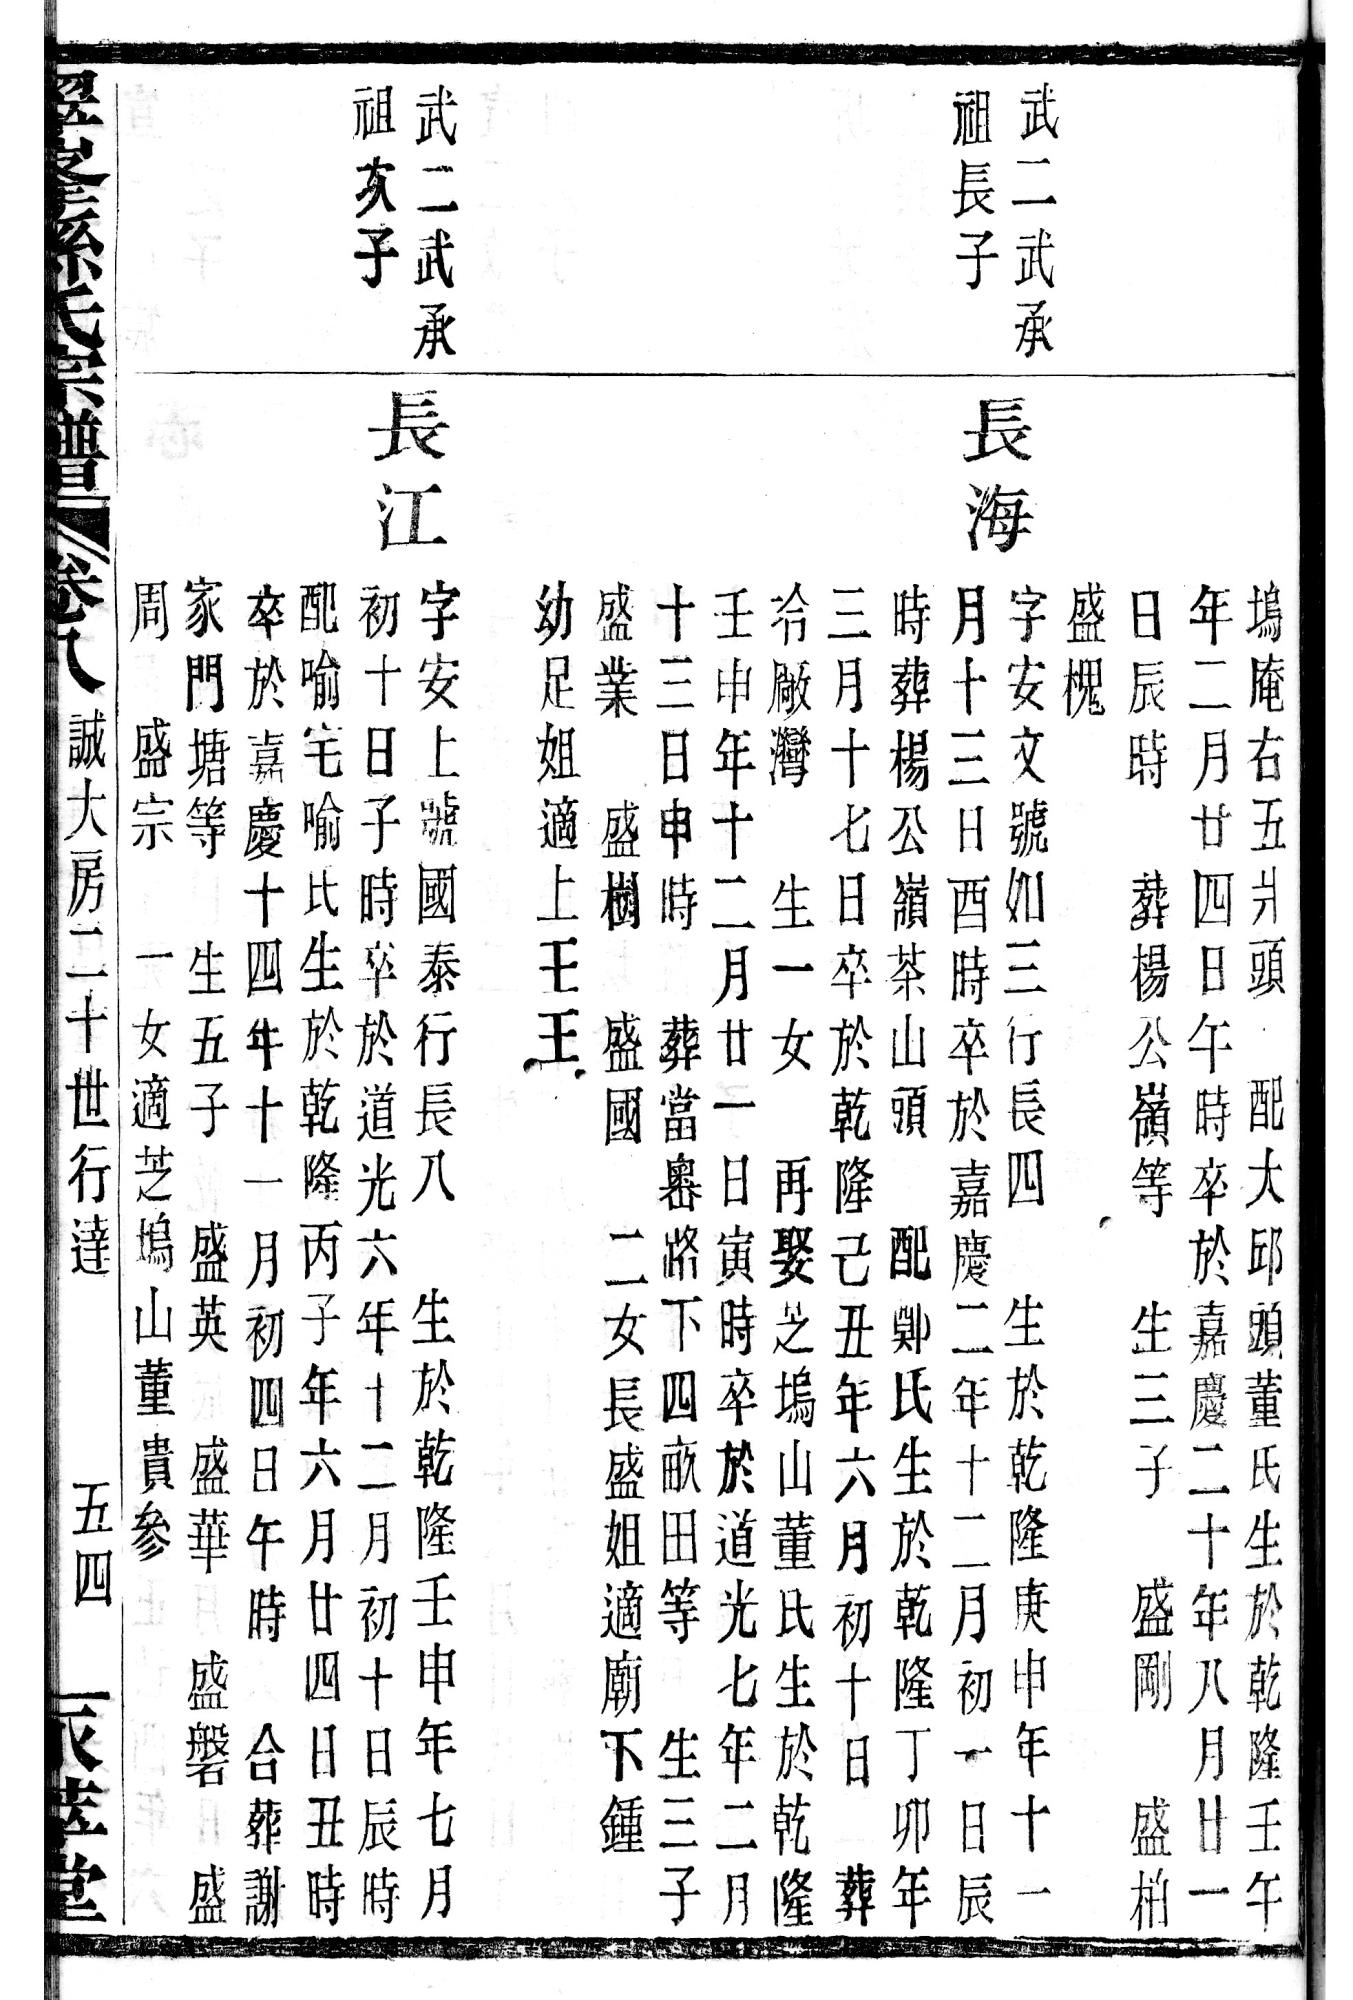 塢庵右五爿頭 配大邱頭董氏生於乾隆壬午
年二月廿四日午時卒於嘉慶二十年八月廿一
日辰時 葬楊公嶺等 生三子 盛剛 盛柏
盛槐
武二武承
祖長子
長海
字安文號如三行長四 生於乾隆庚申年十一
月十三日酉時卒於嘉慶二年十二月初一日辰
時葬楊公嶺茶山頭 配鄭氏生於乾隆丁卯年
三月十七日卒於乾隆己丑年六月初十日 葬
冾廠灣 生一女 再娶芝塢山董氏生於乾隆
壬申年十二月廿一日寅時卒於道光七年二月
十三日申時 葬當嶴路下四畝田等 生三子
盛業 盛樹 盛國 二女長盛姐適廟下鍾
幼足姐適上王王
武二武承
祖次子
長江
字安上號國泰行長八 生於乾隆壬申年七月
初十日子時卒於道光六年十二月初十日辰時
配喻宅喻氏生於乾隆丙子年六月廿四日丑時
卒於嘉慶十四年十一月初四日午時 合葬謝
家門塘等 生五子 盛英 盛華 盛磐 盛
周 盛宗 一女適芝塢山董貴參
翠峯孫氏宗譜 卷八 誠大房二十世行達 五四 萃堂